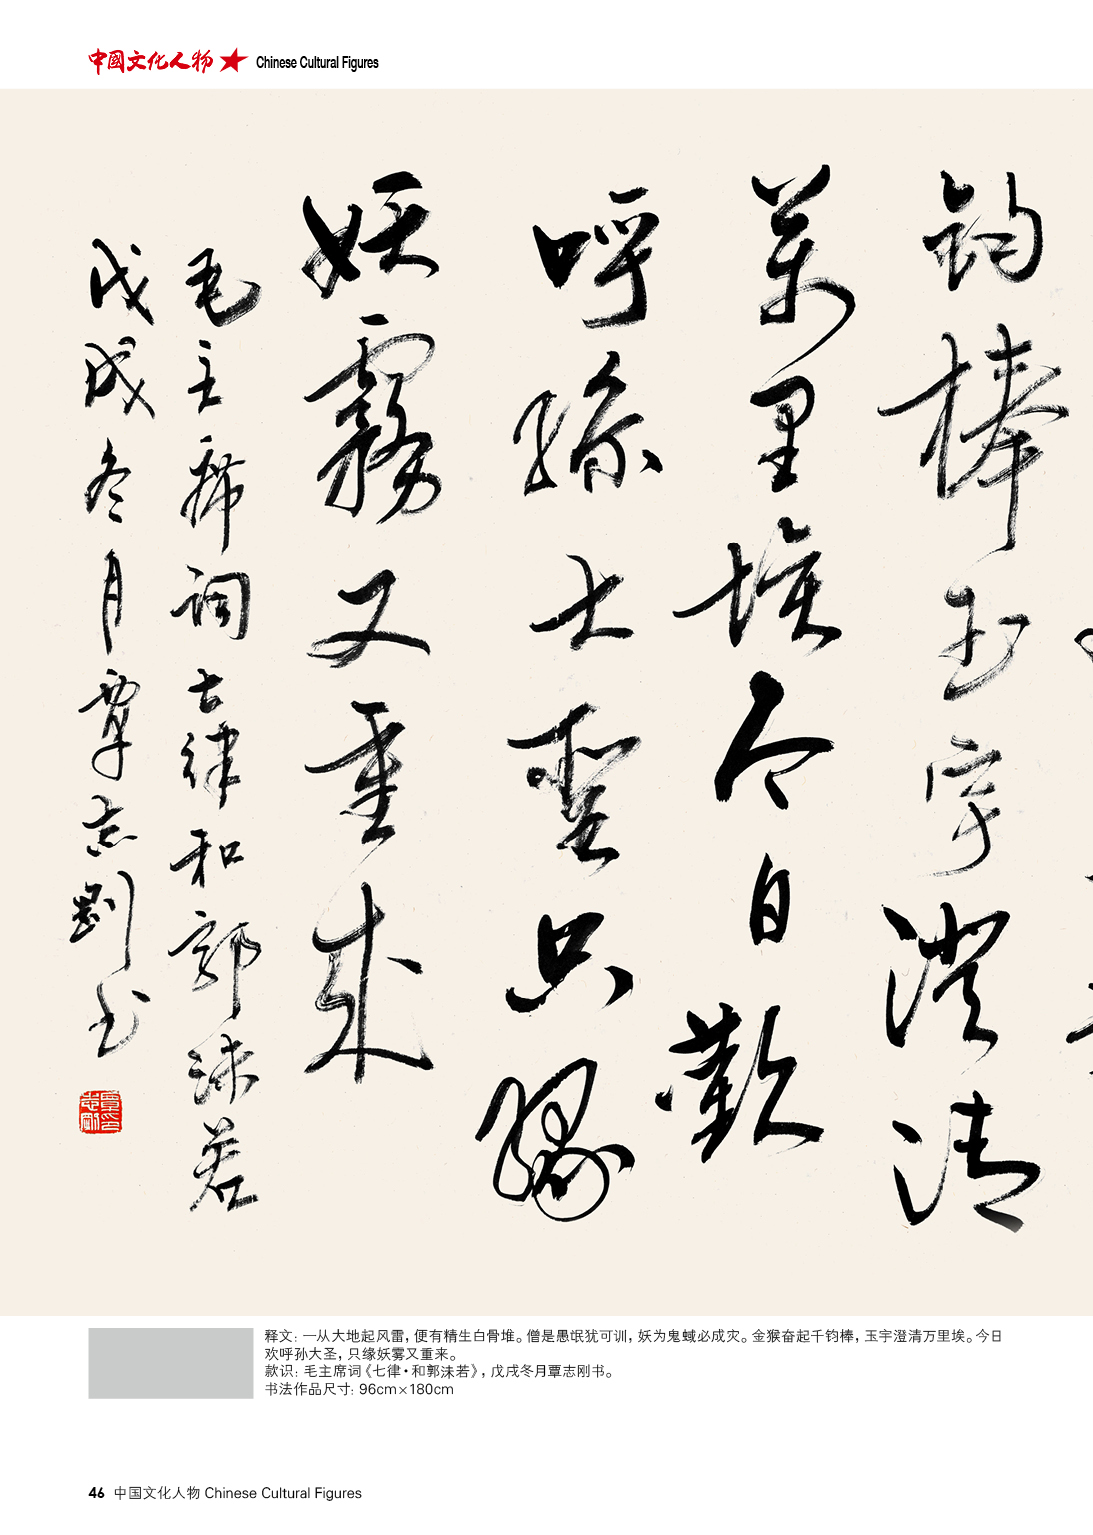 中國文化人物 Chinese Cultural Figures
鈞棒玉宇澄清
萬里埃今日歡
呼孫大聖只緣
妖霧又重來
毛主席词七律和郭沫若
戊戌冬月覃志剛书
释文：一从大地起风雷，便有精生白骨堆。僧是愚氓犹可训，妖为鬼蜮必成灾。金猴奋起千钧棒，玉宇澄清万里埃。今日
欢呼孙大圣，只缘妖雾又重来。
款识：毛主席词《七律·和郭沫若》，戊戌冬月覃志刚书。
书法作品尺寸：96cm×180cm
46 中国文化人物 Chinese Cultural Figures